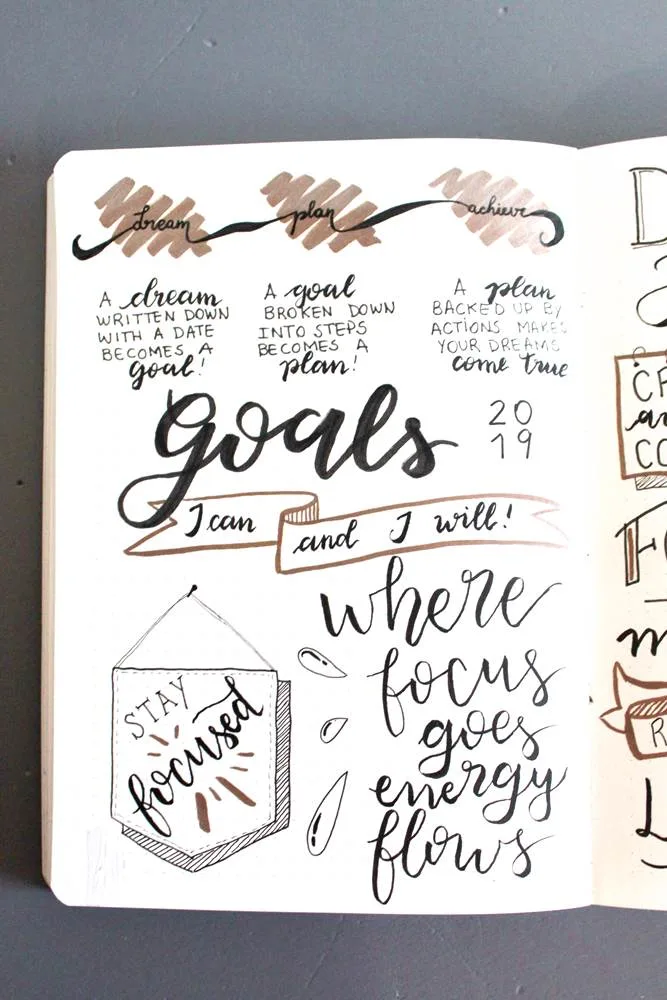 dream plan achieve
A dream
WRITTEN DOWN
WITH A DATE
BECOMES A
goal!
A goal
BROKEN DOWN
INTO STEPS
BECOMES A
plan!
A plan
BACKED UP BY
ACTIONS MAKES
YOUR DREAMS
come true
goals
20
19
I can and I will!
where
focus
goes
energy
flows
STAY
focused